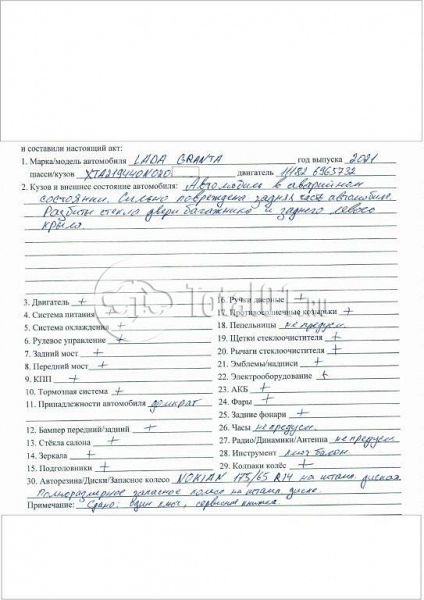 и составили настоящий акт:
1. Марка/модель автомобиля LADA GRANTA год выпуска 2021
шасси/кузов XTA219440N020 двигатель 11182 6965732
2. Кузов и внешнее состояние автомобиля: Автомобиль в аварийном
состоянии. Сильно повреждена задняя часть автомобиля.
Разбиты стекла двери багажника и заднего левого
крыла
3. Двигатель +
4. Система питания +
5. Система охлаждения +
6. Рулевое управление +
7. Задний мост +
8. Передний мост +
9. КПП +
10. Тормозная система +
11. Принадлежности автомобиля домкрат
12. Бампер передний/задний +
13. Стёкла салона +
14. Зеркала +
15. Подголовники +
16. Ручки дверные +
17. Противосолнечные козырьки +
18. Пепельницы не предусм.
19. Щетки стеклоочистителя +
20. Рычаги стеклоочистителя +
21. Эмблемы/надписи +
22. Электрооборудование +
23. АКБ +
24. Фары +
25. Задние фонари +
26. Часы не предусм.
27. Радио/Динамики/Антенна не предусм
28. Инструмент ключ балон.
29. Колпаки колёс +
30. Авторезина/Диски/Запасное колесо NOKIAN 175/65 R14 на штамп. дисках
Полноразмерное запасное колесо на штамп. диске
Примечание: Сдано: один ключ, сервисная книжка
Total01.ru